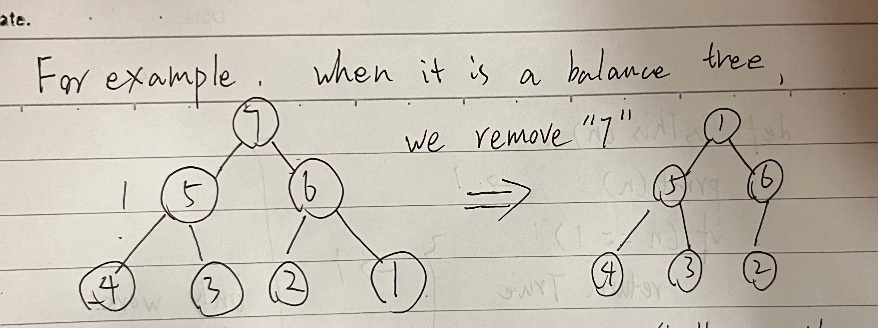 ate.
For example, when it is a balance tree,
7 we remove "7" 1
1 5 6 ⇒ 5 6
4 3 2 1 4 3 2